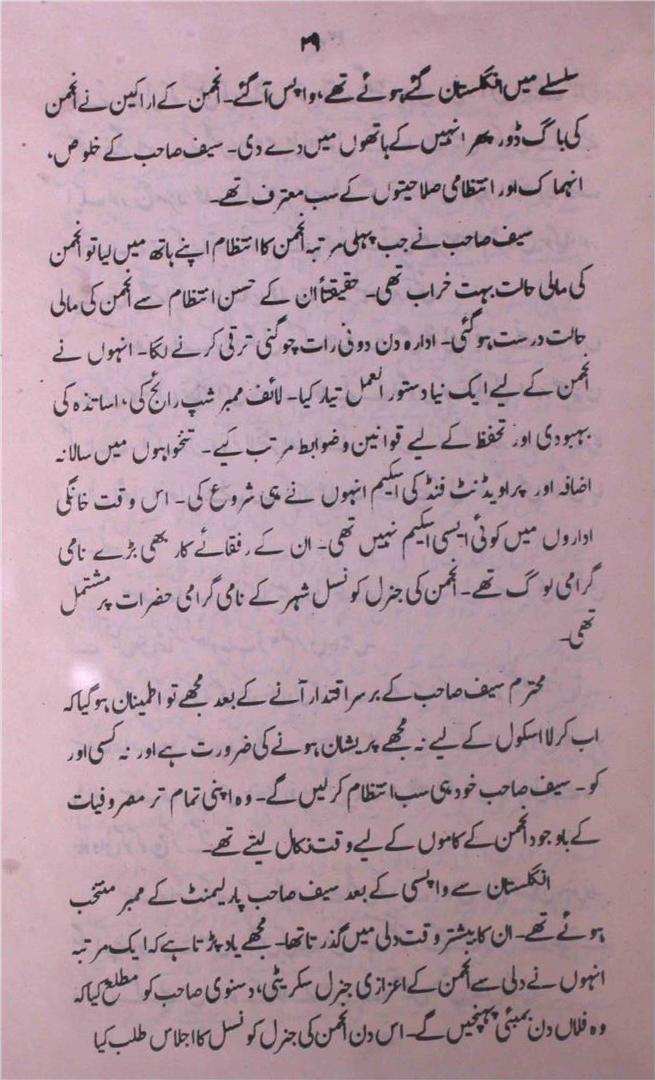 ۲۹
سلسلے میں انگلستان گئے ہوئے تھے، واپس آگئے۔ انجمن کے اراکین نے انجمن
کی باگ ڈور پھر انہیں کے ہاتھوں میں دے دی۔ سیف صاحب کے خلوص،
انہماک اور انتظامی صلاحیتوں کے سب معترف تھے۔
سیف صاحب نے جب پہلی مرتبہ انجمن کا انتظام اپنے ہاتھ میں لیا تو انجمن
کی مالی حالت بہت خراب تھی۔ حقیقتاً ان کے حسن انتظام سے انجمن کی مالی
حالت درست ہوگئی۔ ادارہ دن دونی رات چوگنی ترقی کرنے لگا۔ انہوں نے
انجمن کے لیے ایک نیا دستور العمل تیار کیا۔ لائف ممبر شپ رائج کی، اساتذہ کی
بہبودی اور تحفظ کے لیے قوانین و ضوابط مرتب کیے۔ تنخواہوں میں سالانہ
اضافہ اور پراویڈنٹ فنڈ کی اسکیم انہوں نے ہی شروع کی۔ اس وقت خانگی
اداروں میں کوئی ایسی اسکیم نہیں تھی۔ ان کے رفقائے کار بھی بڑے نامی
گرامی لوگ تھے۔ انجمن کی جنرل کونسل شہر کے نامی گرامی حضرات پر مشتمل
تھی۔
محترم سیف صاحب کے برسر اقتدار آنے کے بعد مجھے تو اطمینان ہوگیا کہ
اب کرلا اسکول کے لیے نہ مجھے پریشان ہونے کی ضرورت ہے اور نہ کسی اور
کو۔ سیف صاحب خود ہی سب انتظام کرلیں گے۔ وہ اپنی تمام تر مصروفیات
کے باوجود انجمن کے کاموں کے لیے وقت نکال لیتے تھے۔
انگلستان سے واپسی کے بعد سیف صاحب پارلیمنٹ کے ممبر منتخب
ہوئے تھے۔ ان کا بیشتر وقت دلی میں گذرتا تھا۔ مجھے یاد پڑتا ہے کہ ایک مرتبہ
انہوں نے دلی سے انجمن کے اعزازی جنرل سکریٹی، دسنوی صاحب کو مطلع کیا کہ
وہ فلاں دن بمبئی پہنچیں گے۔ اس دن انجمن کی جنرل کونسل کا اجلاس طلب کیا